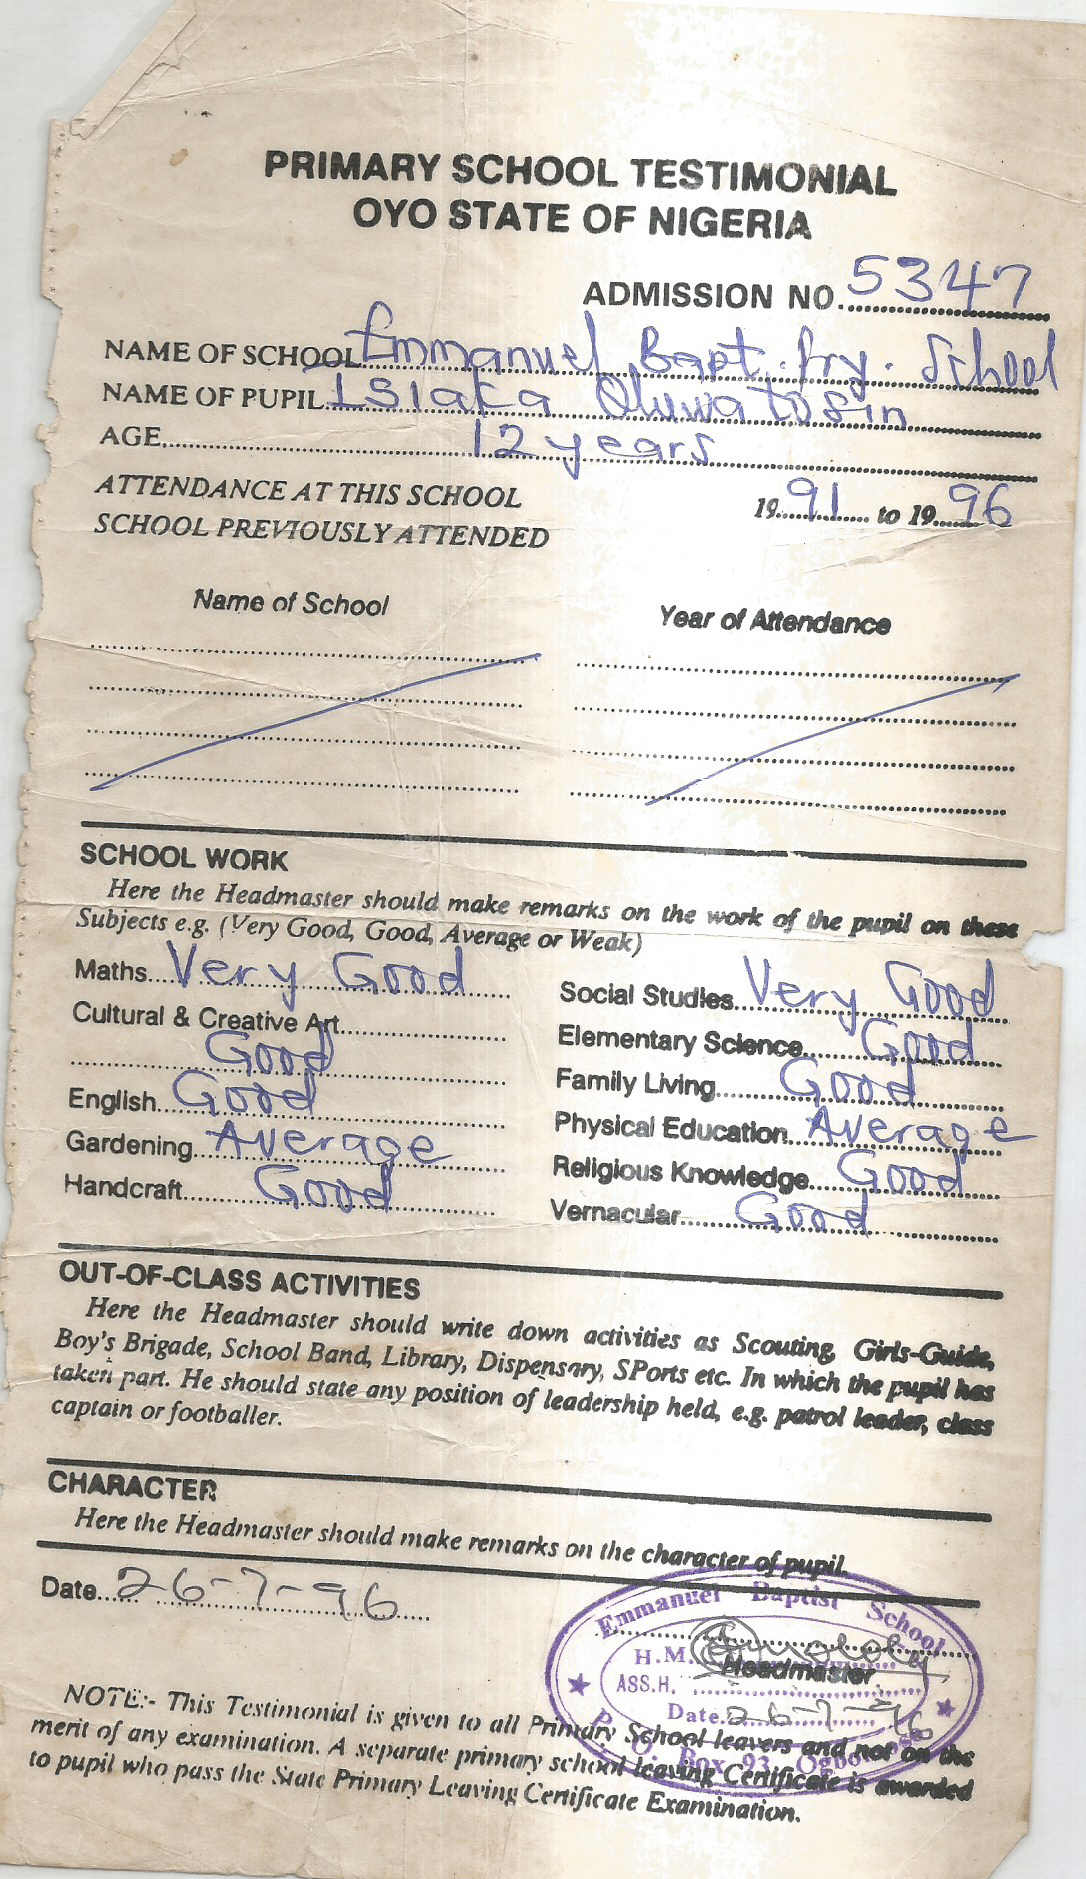 PRIMARY SCHOOL TESTIMONIAL
OYO STATE OF NIGERIA
ADMISSION NO. 5347
NAME OF SCHOOL Emmanuel Bapt. Pry. School
NAME OF PUPIL Isiaka Oluwatosin
AGE 12 years
ATTENDANCE AT THIS SCHOOL 1991 to 1996
SCHOOL PREVIOUSLY ATTENDED
Name of School Year of Attendance
SCHOOL WORK
Here the Headmaster should make remarks on the work of the pupil on these
Subjects e.g. (Very Good, Good, Average or Weak)
Maths Very Good
Cultural & Creative Art
Good
English Good
Gardening Average
Handcraft Good
Social Studies Very Good
Elementary Science Good
Family Living Good
Physical Education Average
Religious Knowledge Good
Vernacular Good
OUT-OF-CLASS ACTIVITIES
Here the Headmaster should write down activities as Scouting, Girls-Guide,
Boy's Brigade, School Band, Library, Dispensary, SPorts etc. In which the pupil has
taken part. He should state any position of leadership held, e.g. patrol leader, class
captain or footballer.
CHARACTER
Here the Headmaster should make remarks on the character of pupil.
Date 26-7-96
Emmanuel Baptist School
H.M.
Headmaster
ASS.H.
Date 26-7-96
P. O. Box 93
NOTE:- This Testimonial is given to all Primary School leavers and not on the
merit of any examination. A separate primary school leaving Certificate is awarded
to pupil who pass the State Primary Leaving Certificate Examination.